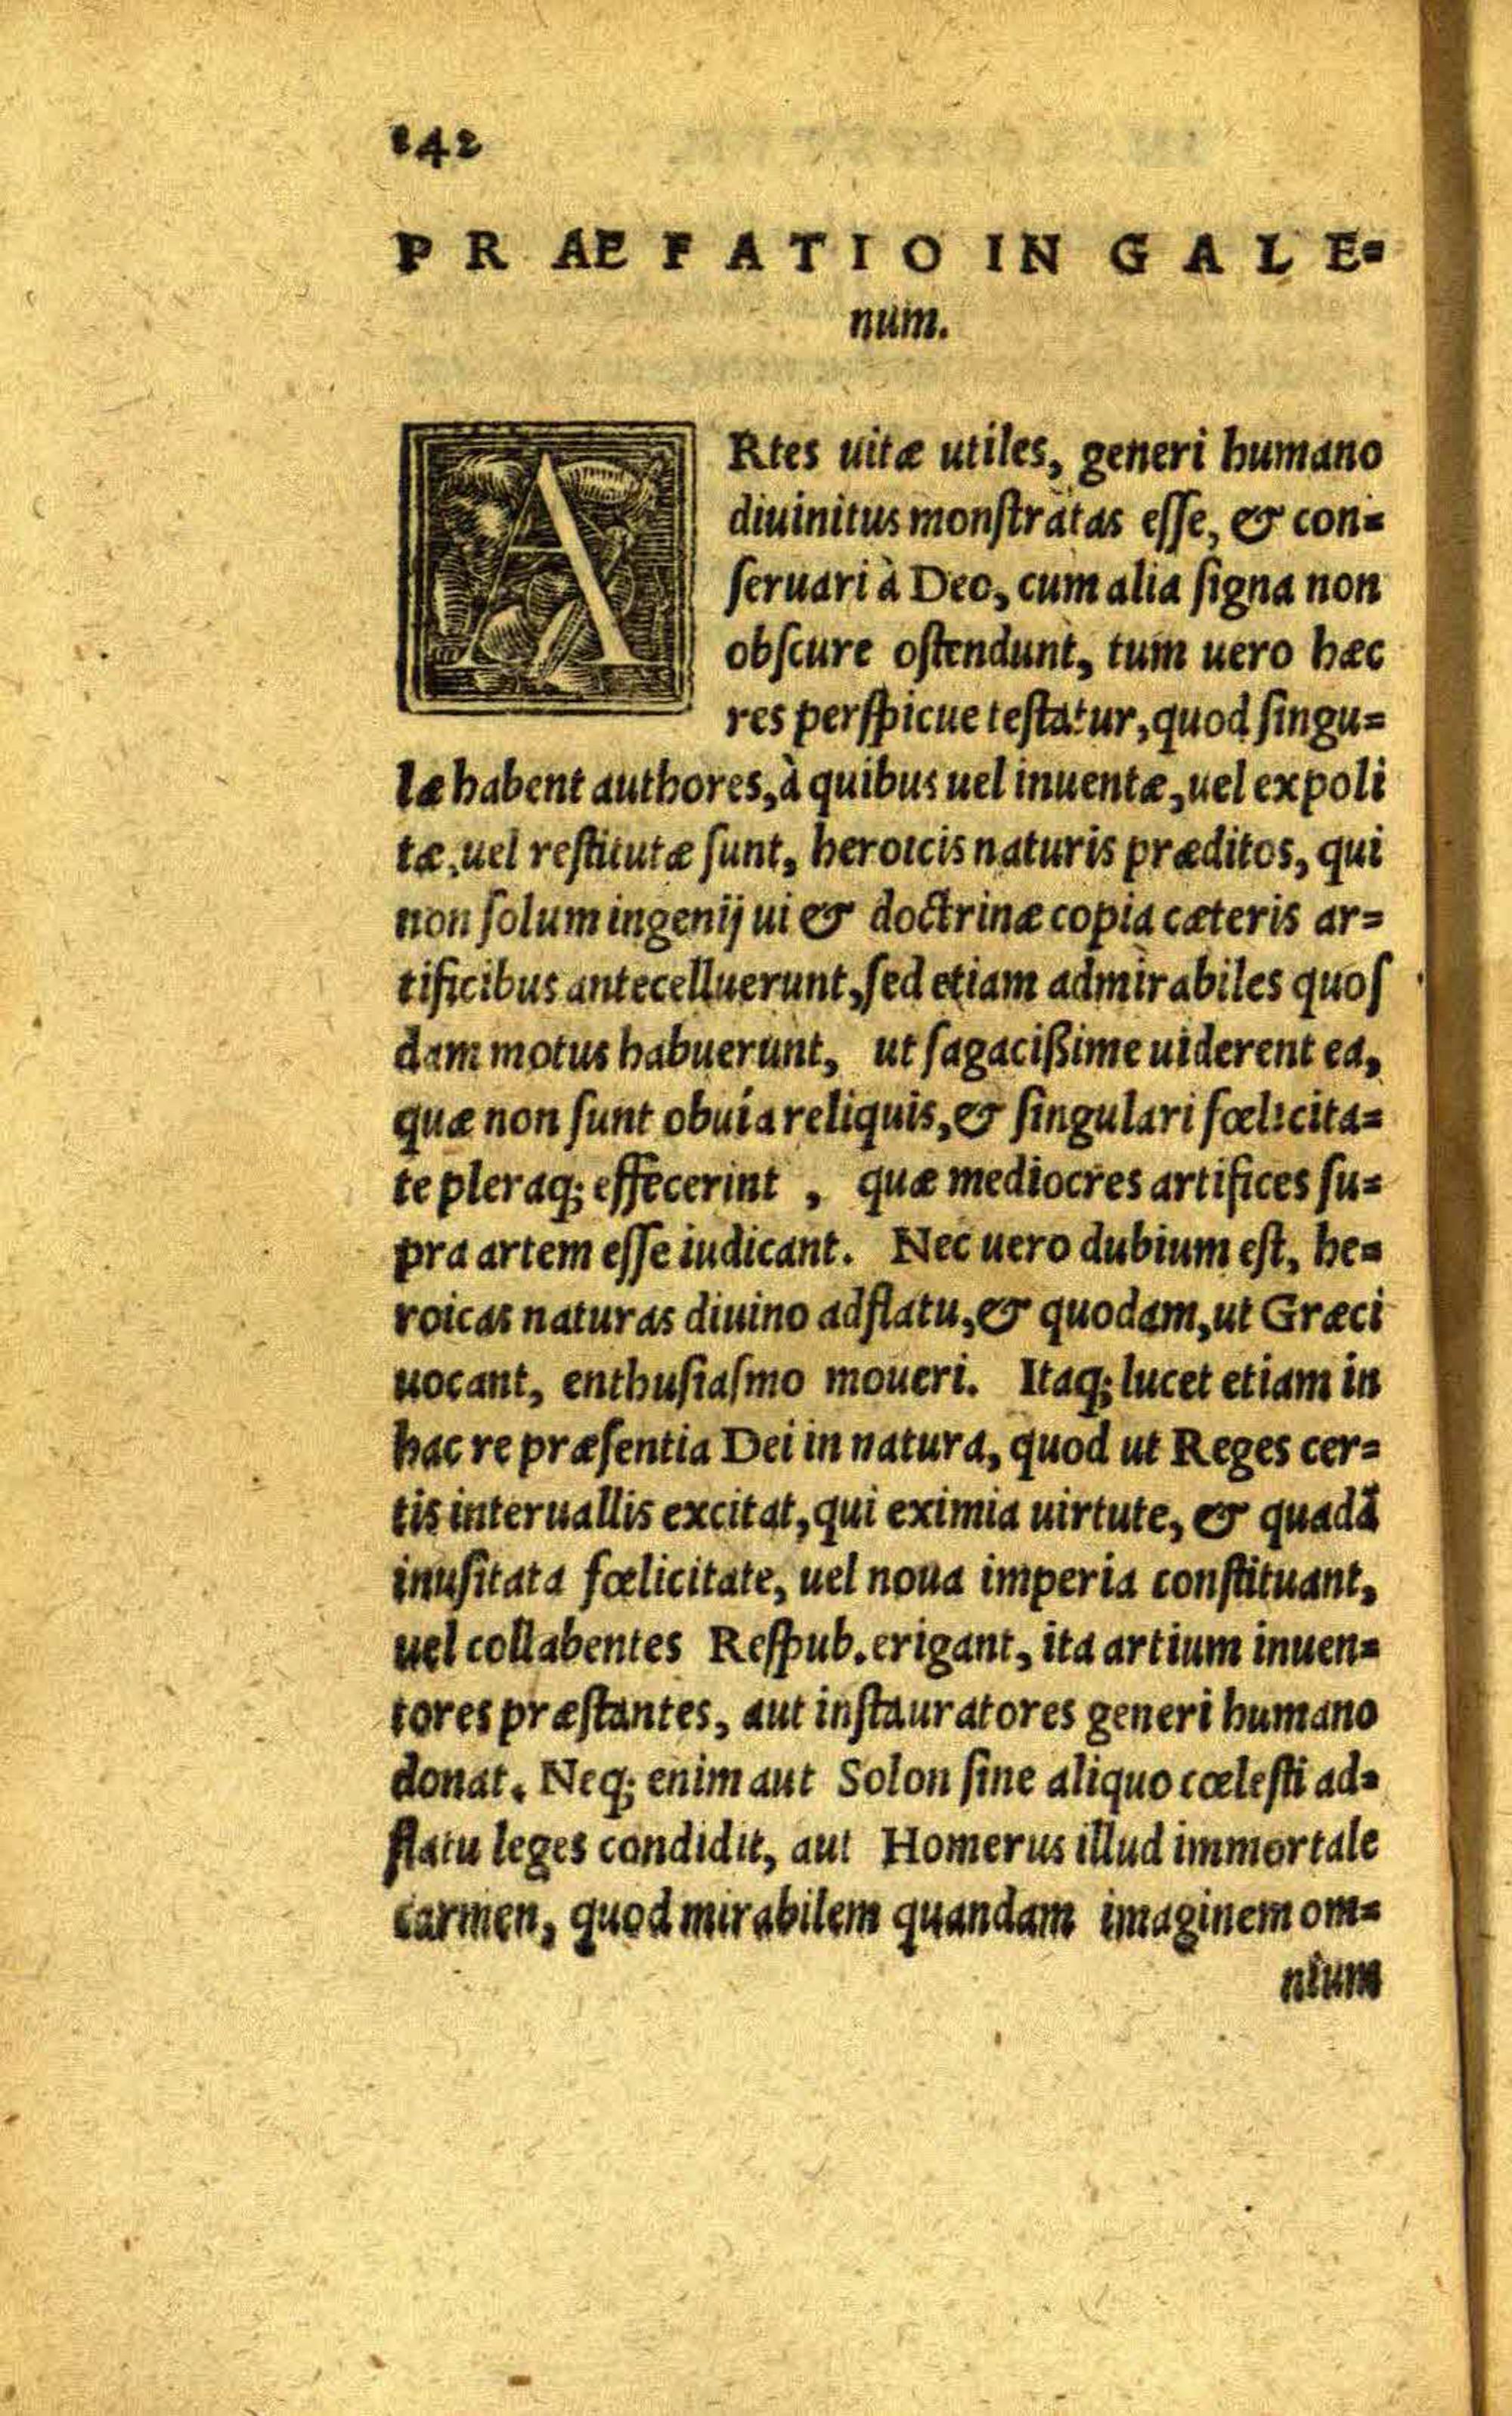 142
PRAEFATIO IN GALE=
num.
ARtes uitæ utiles, generi humano
diuinitus monſtratas eſſe, & con=
ſeruari à Deo, cum alia ſigna non
obſcure oſtendunt, tum uero hæc
res perſpicue teſtatur, quod ſingu=
læ habent authores, à quibus uel inuentæ, uel expoli
tæ, uel reſtitutæ ſunt, heroicis naturis præditos, qui
non ſolum ingenij ui & doctrinæ copia cæteris ar=
tificibus antecelluerunt, ſed etiam admirabiles quoſ
dam motus habuerunt, ut ſagacißime uiderent ea,
quæ non ſunt obuia reliquis, & ſingulari fœlicita=
te pleraq; effecerint , quæ mediocres artifices ſu=
pra artem eſſe iudicant. Nec uero dubium eſt, he=
roicas naturas diuino adflatu, & quodam, ut Græci
uocant, enthuſiaſmo moueri. Itaq; lucet etiam in
hac re præſentia Dei in natura, quod ut Reges cer=
tis interuallis excitat, qui eximia uirtute, & quadã
inuſitata fœlicitate, uel noua imperia conſtituant,
uel collabentes Reſpub. erigant, ita artium inuen=
tores præſtantes, aut inſtauratores generi humano
donat. Neq; enim aut Solon ſine aliquo cœleſti ad=
flatu leges condidit, aut Homerus illud immortale
carmen, quod mirabilem quandam imaginem om=
nium